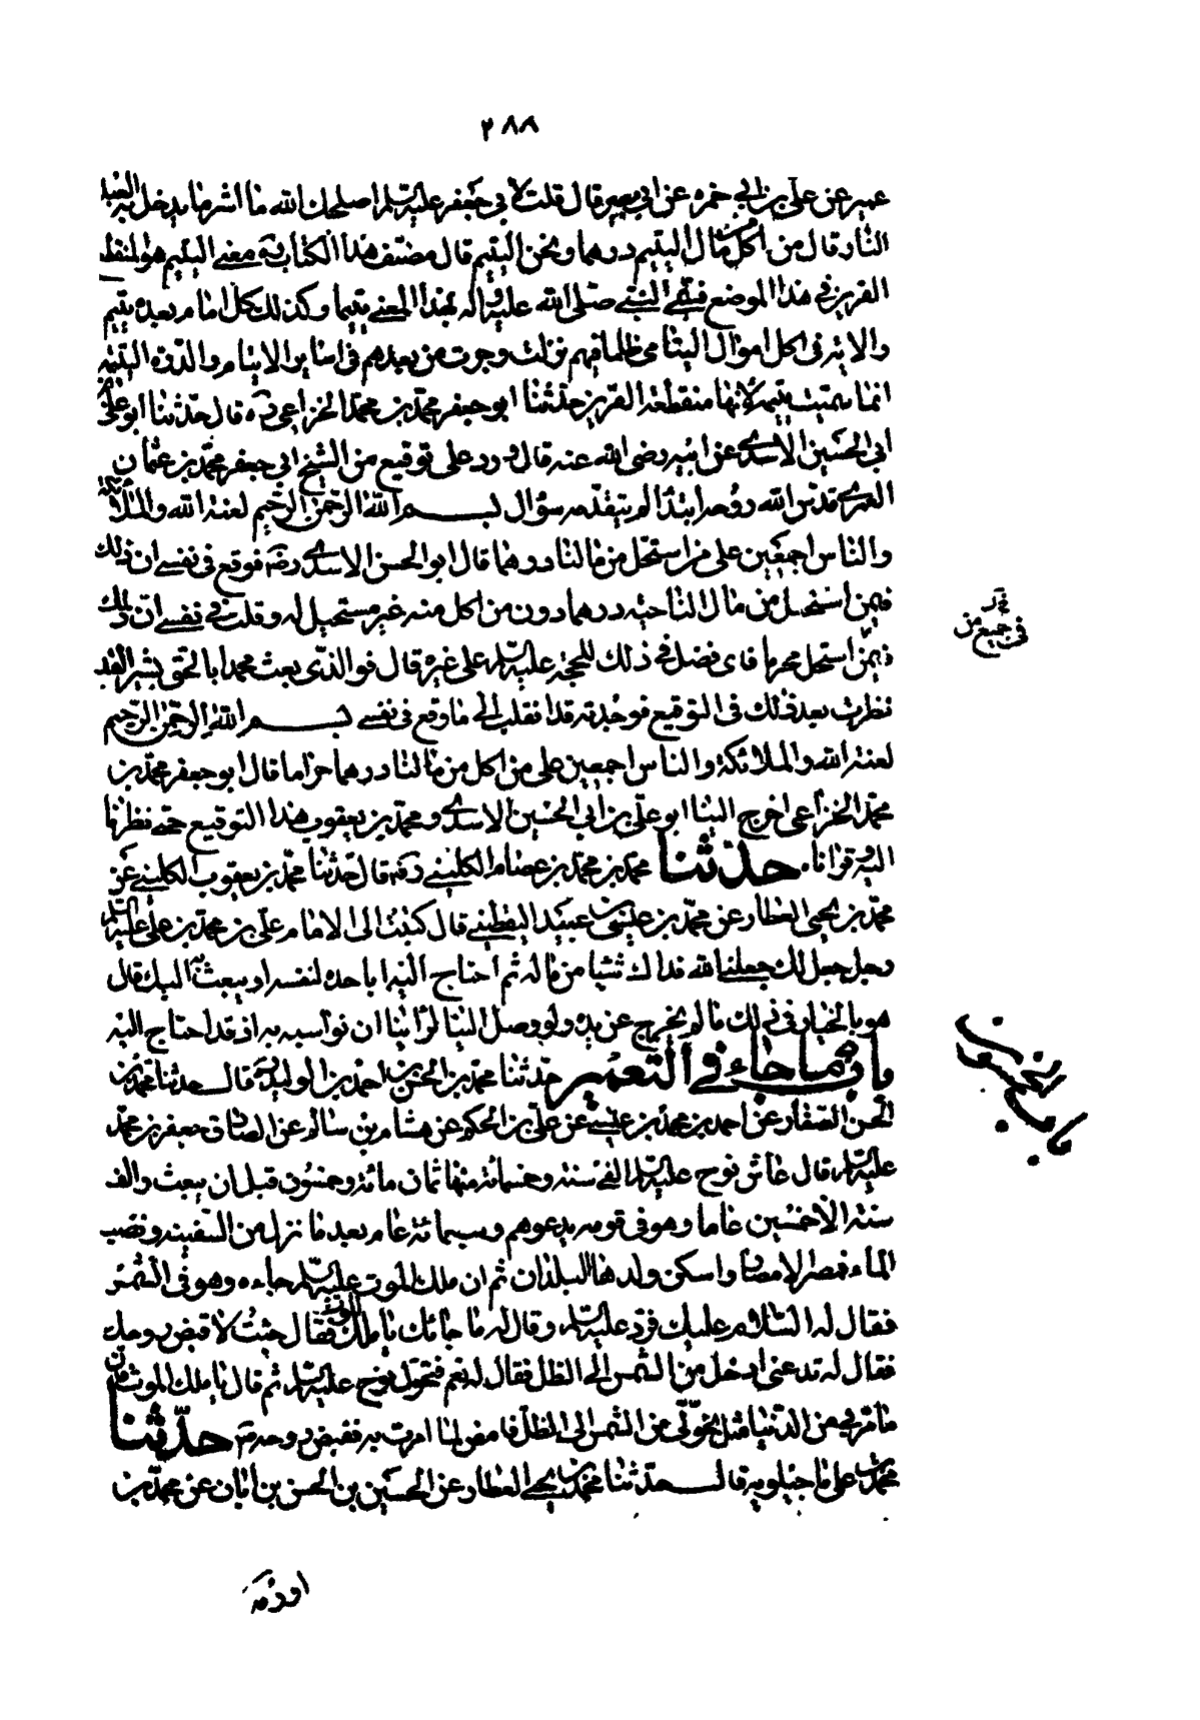 ٢٨٨
عمير عن علي بن ابي حمزه عن ابي بصير قال قلت لابي جعفر عليه السلم اصلحك الله ما ايسر ما يدخل به العبد
النار قال من اكل مال اليتيم درهما ونحن اليتيم قال مصنف هذا الكتاب ره معنى اليتيم هو المنقطع
القرين في هذا الموضع فسمي النبي صلى الله عليه واله بهذا المعنى يتيما وكذلك كل امام بعده يتيم
والاية في اكل اموال اليتامى ظلما فيهم نزلت وجرت من بعدهم في ساير الايتام والدرة اليتيمة
انما سميت يتيمة لانها منقطعة القرين حدثنا ابو جعفر محمد بن محمد الخزاعي ره قال حدثنا ابو علي بن
ابي الحسين الاسدي عن ابيه رضى الله عنه قال ورد على توقيع من الشيخ ابي جعفر محمد بن عثمان
العمري قدس الله روحه ابتداء لم يتقدمه سؤال بسم الله الرحمن الرحيم لعنة الله والملائكة
والناس اجمعين على من استحل من مالنا درهما قال ابو الحسن الاسدي رضه فوقع في نفسي ان ذلك
فيمن استحل من مال الناحية درهما دون من اكل منه غير مستحيل له وقلت في نفسي ان ذلك
في جميع من
فيمن استحل محرما فاى فضل في ذلك للحجة عليه السلم على غيره قال فوالذى بعث محمدا بالحق بشيرا لقد
نظرت بعد ذلك في التوقيع فوجدته قد انقلب الى ما وقع في نفسي بسم الله الرحمن الرحيم
لعنة الله والملائكة والناس اجمعين على من اكل من مالنا درهما حراما قال ابو جعفر محمد بن
محمد الخزاعى اخرج الينا ابو علي بن ابي الحسين الاسدي ومحمد بن يعقوب هذا التوقيع حتى نظرنا
اليه وقراناه حدثنا محمد بن محمد بن عصام الكليني رضه قال حدثنا محمد بن يعقوب الكليني عن
محمد بن يحيى العطار عن محمد بن عيسى بن عبيد اليقطيني قال كتبت الى الامام علي بن محمد بن علي عليه السلم
رجل جعل لك جعلنا الله فداك شيئا من ماله ثم احتاج اليه اياخذه لنفسه او يبعث به اليك قال
هو بالخيار في ذلك ما لم يخرج عن يده ولو وصل الينا لراينا ان نواسيه به اذ قد احتاج اليه
باب ما جاء في التعمير حدثنا محمد بن الحسن بن احمد بن الوليد ره قال حدثنا محمد بن
الحسن الصفار عن احمد بن محمد بن عيسى عن علي بن الحكم عن هشام بن سالم عن الصادق جعفر بن محمد
عليه السلم قال عاش نوح عليه السلم الفي سنة وخمسمائة منها ثمان مائة وخمسون قبل ان يبعث والف
سنة الا خمسين عاما وهو في قومه يدعوهم وسبعمائة عام بعد ما نزل من السفينة ونضب
الماء فمصر الامصار واسكن ولده البلدان ثم ان ملك الموت عليه السلم جاءه وهو في الشمس
فقال له السلام عليك فرد عليه السلم وقال له ما جائك يا ملك الموت فقال جئت لاقبض روحك
فقال له تدعنى ادخل من الشمس الى الظل فقال له نعم فتحول نوح عليه السلم ثم قال يا ملك الموت فان
ما مر بي من الدنيا مثل تحولي من الشمس الى الظل فامض لما امرت به فقبض روحه حدثنا
محمد بن على ماجيلويه قال حدثنا محمد بن يحيى العطار عن الحسين بن الحسن بن ابان عن محمد بن
اورمة